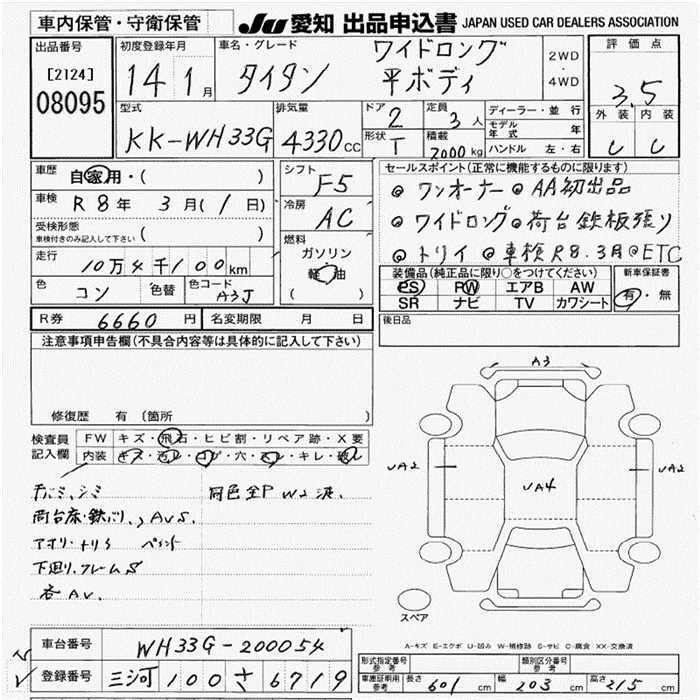 車内保管・守衛保管
JU 愛知 出品申込書 JAPAN USED CAR DEALERS ASSOCIATION
出品番号
[2124]
08095
初度登録年月
14 1月
車名・グレード
タイタン
ワイドロング
平ボディ
2WD
・
4WD
評価点
3.5
外装 内装
C C
型式
KK-WH33G
排気量
4330cc
ドア
2
形状
T
定員
3人
積載
2000kg
ディーラー・並 行
モデル年式 年
ハンドル 左・右
車歴
自家用・( )
車検
R8年 3月(1日)
受検形態
車検付きのみ記入して下さい ( )
走行
10万4千100km
色
コン
色替
色コード
A3J
シフト
F5
冷房
AC
燃料
ガソリン
軽油
( )
セールスポイント(正常に機能するものに限ります)
◎ワンオーナー◎AA初出品
◎ワイドロング◎荷台鉄板張り
◎トリイ◎車検R8.3月◎ETC
装備品(純正品に限り○をつけてください)
PS PW エアB AW
SR ナビ TV カワシート
新車保証書
有・無
R券 6660円
名変期限 月 日
後日品
注意事項申告欄(不具合内容等は具体的に記入して下さい)
修復歴 有 〔箇所
検査員
記入欄
FW キズ・飛石・ヒビ割・リペア跡・X要
内装 キズ・汚レ・コゲ・穴・スレ・キレ・破レ
同色全P W2波、
下廻り、フレームS
各AV.
A3
UA2
UA2
UA4
スペア
A-キズ E-エクボ U-凹み W-補修跡 S-サビ C-腐食 XX-交換済
車台番号 WH33G-200054
登録番号 三河 100 さ 6719
形式指定番号
参考
類別区分番号
参考
車庫証明用
参考
長さ 601cm 幅 203cm 高さ 215cm